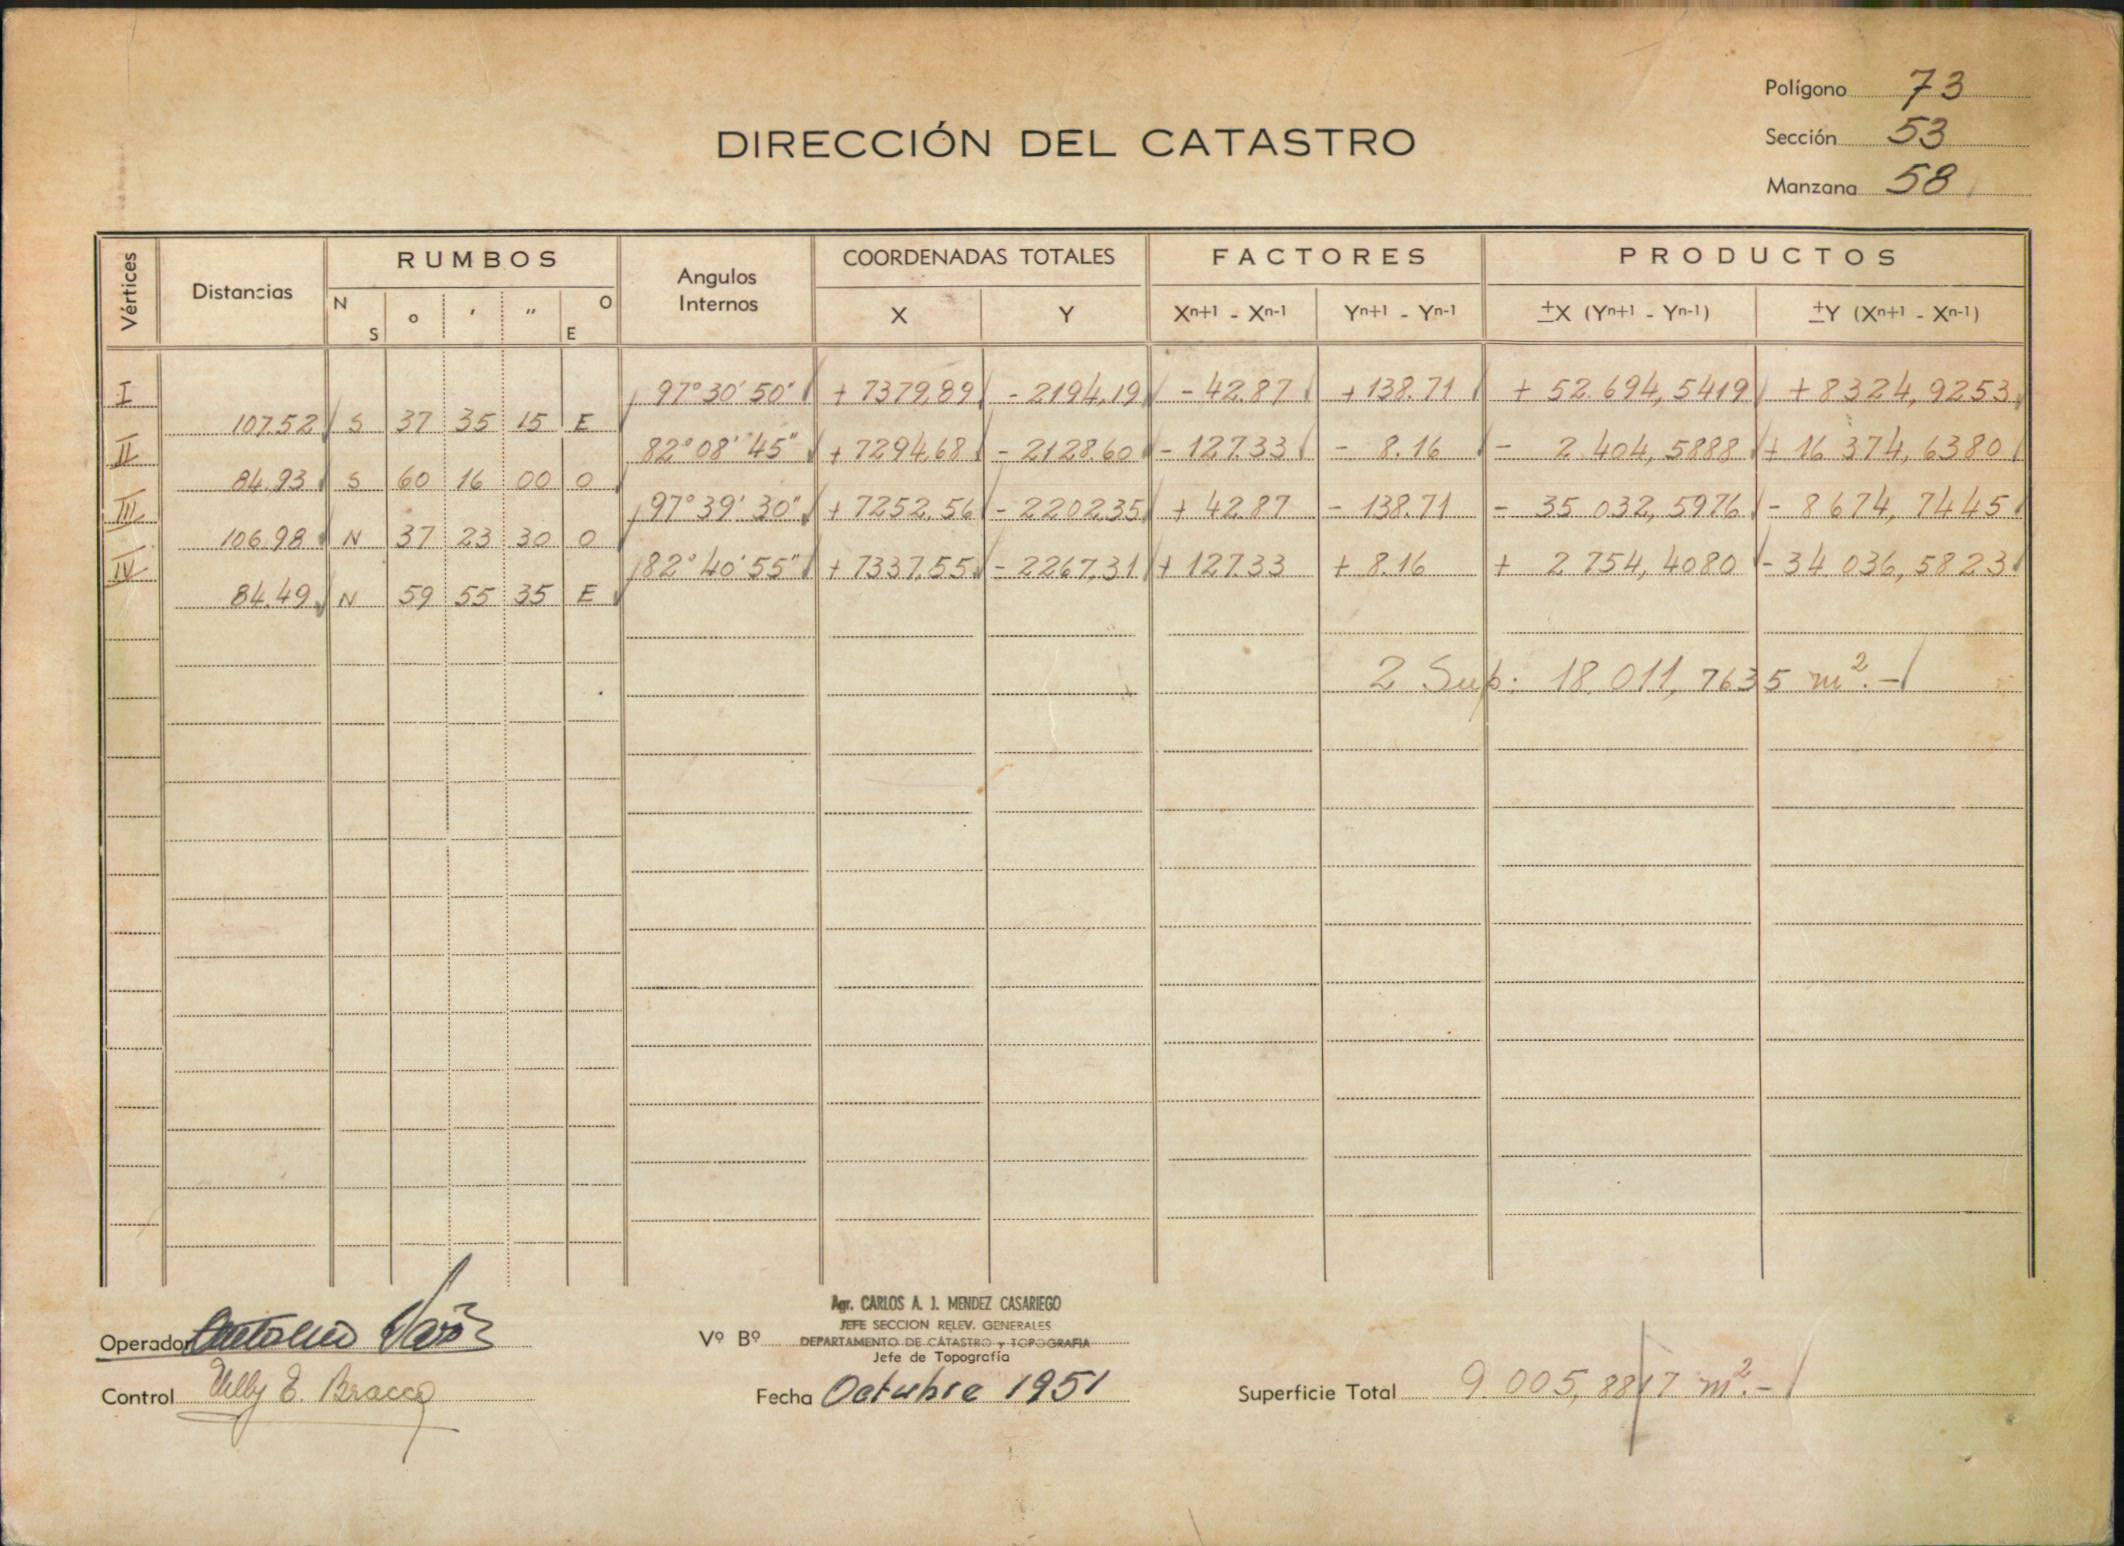 Polígono 73
DIRECCIÓN DEL CATASTRO
Sección 53
Manzana 58
Vértices Distancias RUMBOS Angulos Internos COORDENADAS TOTALES FACTORES PRODUCTOS
N S o ' " O E X Y Xn+1 - Xn-1 Yn+1 - Yn-1 ±X (Yn+1 - Yn-1) ±Y (Xn+1 - Xn-1)
I 97°30'50" + 7379,89 - 2194,19 - 42.87 + 138.71 + 52.694,5419 + 8324,9253
107.52 S 37 35 15 E
II 82°08'45" + 7294,68 - 2128.60 - 127.33 - 8.16 - 2.404,5888 + 16 374,6380
84.93 S 60 16 00 O
III 97°39'30" + 7252.56 - 2202.35 + 42.87 - 138.71 - 35 032,5976 - 8674,7445
106.98 N 37 23 30 O
IV 82°40'55" + 7337,55 - 2267,31 + 127.33 + 8.16 + 2 754,4080 - 34.036,5823
84.49 N 59 55 35 E
2 Sup: 18.011,7635 m².-
Agr. CARLOS A. J. MENDEZ CASARIEGO
JEFE SECCION RELEV. GENERALES
Operador Vº Bº DEPARTAMENTO DE CATASTRO y TOPOGRAFIA
Jefe de Topografía
Control E. Bracco Fecha Octubre 1951 Superficie Total 9.005,8817 m².-